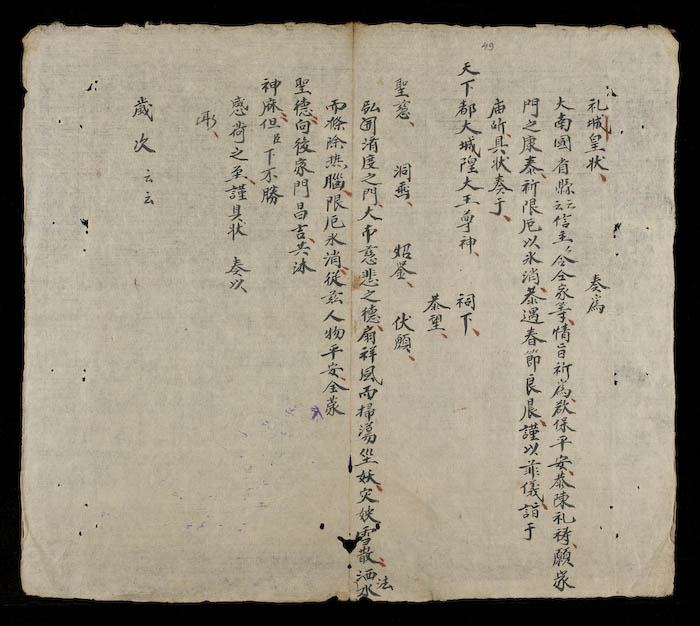 49
礼城皇狀、 奏爲
大南國省縣云云信主、仝全家等、情旨祈爲、欲保平安、恭陳礼祷、願家
門之康泰、祈限厄以氷消、恭遇春節良晨、謹以菲儀、詣于
庙所、具狀奏于、
天下都大城隍大王尊神、 祠下、
恭望、
聖慈、 洞垂、 炤鉴、 伏願、
弘開濟度之門、大布慈悲之德、扇祥風而掃蕩、妖灾殃雪散、洒法水
而滌除热腦、限厄氷消、從兹人物平安、全蒙
聖德、向後家門昌吉、共沐
神庥、但臣下不勝
感荷之至、謹具狀 奏以
聞、
歲次 云云